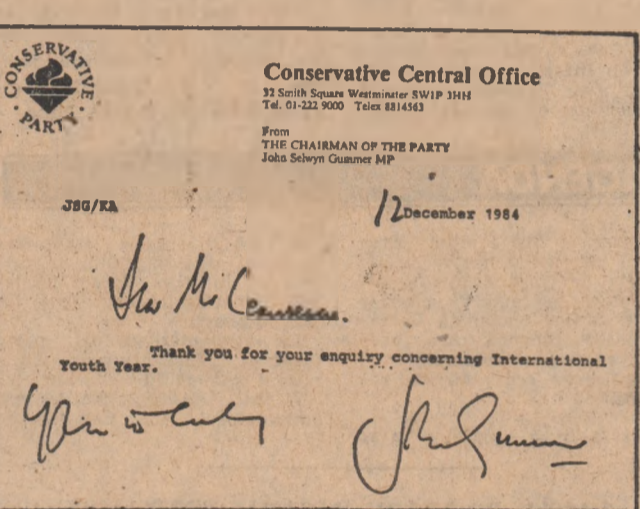 CONSERVATIVE PARTY
Conservative Central Office
32 Smith Square Westminster SW1P 3HH
Tel. 01-222 9000 Telex 8814563
From
THE CHAIRMAN OF THE PARTY
John Selwyn Gummer MP
JSG/KA
12 December 1984
Dear Mr
Thank you for your enquiry concerning International
Youth Year.
Yours sincerely
John Gummer